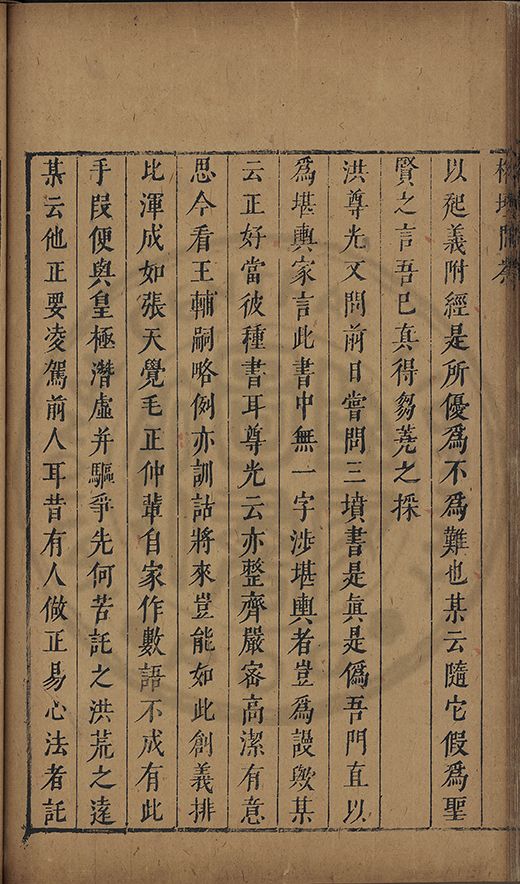 榕壇問業
以起義附經是所優爲不爲難也某云隨它假爲聖
賢之言吾已真得芻蕘之採
洪尊光又問前日嘗問三墳書是眞是僞吾門直以
爲堪輿家言此書中無一字涉堪輿者豈爲謾歟某
云正好當彼種書耳尊光云亦整齊嚴密高潔有意
思今看王輔嗣略例亦訓詁將來豈能如此創義排
比渾成如張天覺毛正仲輩自家作數語不成有此
手段便與皇極潛虛并驅爭先何苦託之洪荒之遠
某云他正要凌駕前人耳昔有人做正易心法者託